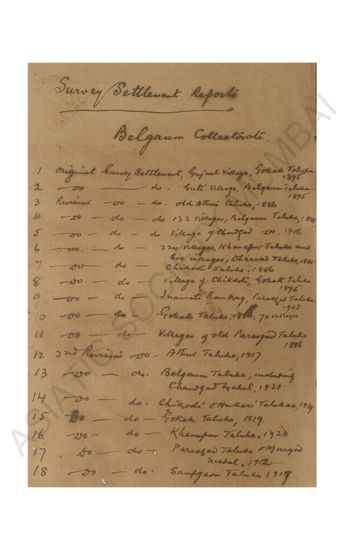 Survey Settlement Reports
Belgaum Collectorate.
1 Original Survey Settlement, Gujnal Village, Gokak Taluka
1895
2 - Do - do. Village, Belgaum Taluka
1895
3 Revision - Do - do. old Athni taluka, 1886
4 - Do - do - do 132 Villages, Belgaum Taluka,
5 - Do - do - do Village of Chandgad Do,
6 - Do - do - Villages, Khanapur Taluka and
Six villages, Dharwar Taluka,
7 - Do - do Chikodi Taluka. 1886
8 - Do - do Village of Chikodi, Gokak Taluka
1896
9 - Do - do Inamati Parasgad Taluka
1903
10 - Do - do - Gokak Taluka, 70 villages
11 - Do - do - Villages of old Parasgad Taluka
1886
12 2nd Revision - Do - Athni Taluka, 1917
13 - Do - do. Belgaum Taluka, including
Chandgad Mahal, 1921
14 - Do - do. Chikodi & Hukeri Talukas,
15 - Do - do - Gokak Taluka, 1919.
16 - Do - do - Khanapur Taluka, 1920
17 - Do - do - Parasgad Taluka & Murgod
Mahal,
18 - Do - do - Sampgaon Taluka
ASIATIC SOCIETY OF MUMBAI